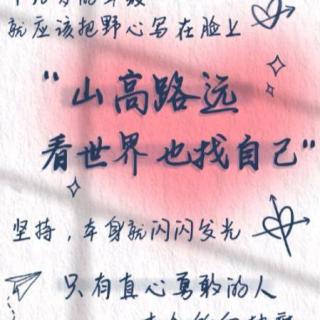 就应该把野心写在脸上
“山高路远
看世界也找自己”
坚持，本身就闪闪发光
只有真心勇敢的人